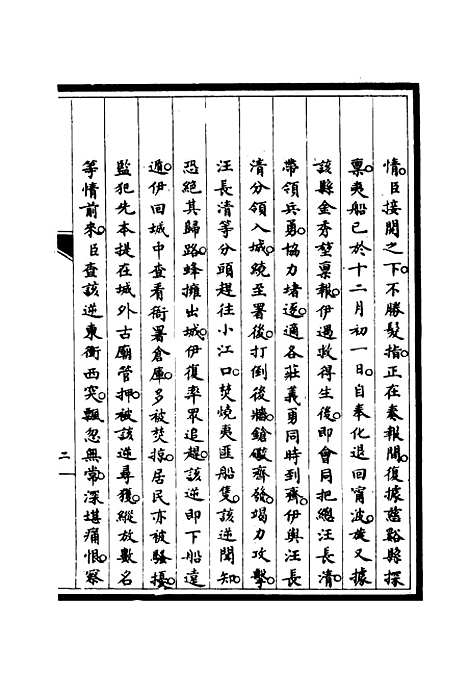 情。臣接閱之下。不勝髮指。正在奏報間。復據慈谿縣探
稟。夷船已於十二月初一日。自奉化退回甯波。旋又據
該縣金秀堃稟報。伊遇救得生後。即會同把總汪長清
帶領兵勇。協力堵逐。適各莊義勇同時到齊。伊與汪長
清分領入城。繞至署後。打倒後牆。鎗礮齊發。竭力攻擊。
汪長清等分頭趕往小江口。焚燒夷匪船隻。該逆聞知。
恐絕其歸路。蜂擁出城。伊復率眾追趕。該逆即下船遠
遁。伊回城中查看衙署倉庫。多被焚掠。居民亦被騷擾。
監犯先本提在城外古廟管押。被該逆尋獲。縱放數名
等情前來。臣查該逆東衝西突。飄忽無常。深堪痛恨。察
二